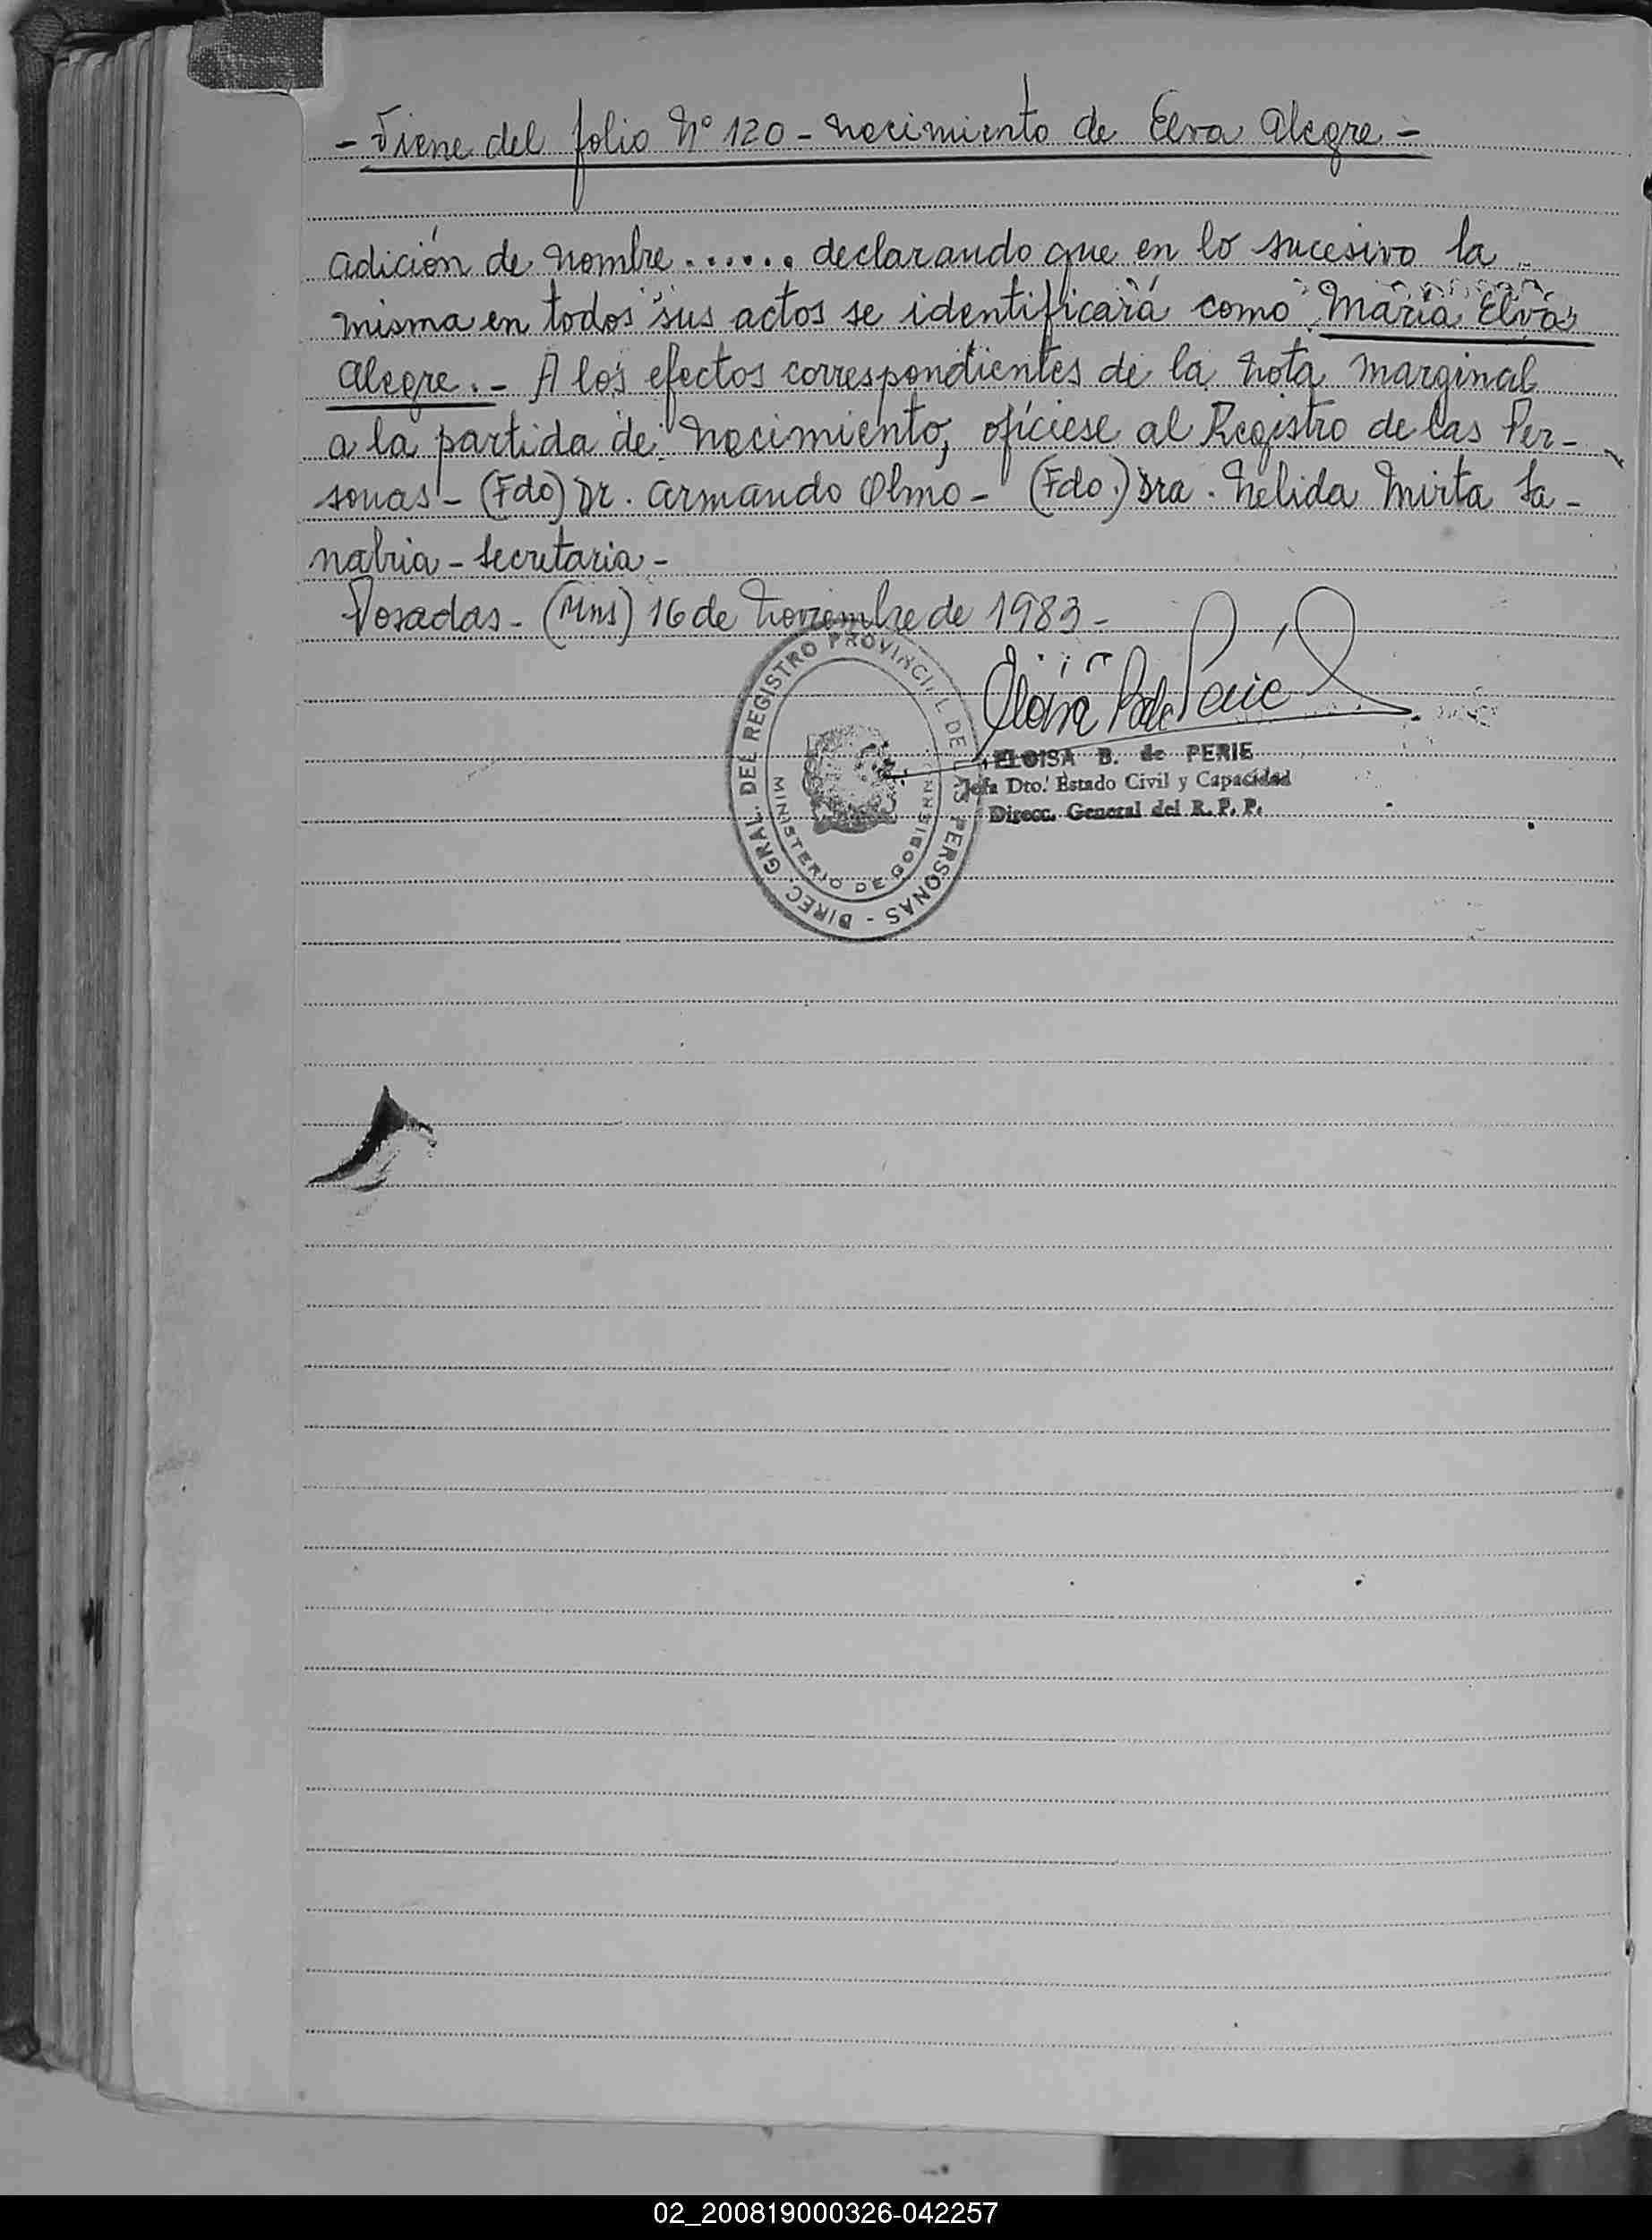 - Viene del folio Nº 120 - Nacimiento de Elva Alegre -
adición de nombre....... declarando que en lo sucesivo la
misma en todos sus actos se identificará como María Elva
Alegre.- A los efectos correspondientes de la nota marginal
a la partida de Nacimiento, ofíciese al Registro de las Per-
sonas - (Fdo) Dr. Armando Olmo - (Fdo.) Dra. Nelida Mirta Sa-
nabria - Secretaria -
Posadas - (Mns) 16 de Noviembre de 1983 -
DIREC. GRAL. DEL REGISTRO PROVINCIAL DE LAS PERSONAS -
MINISTERIO DE GOBIERNO
ELOISA B. de PERIE
Jefa Dto. Estado Civil y Capacidad
Direcc. General del R. P. P.
02_200819000326-042257